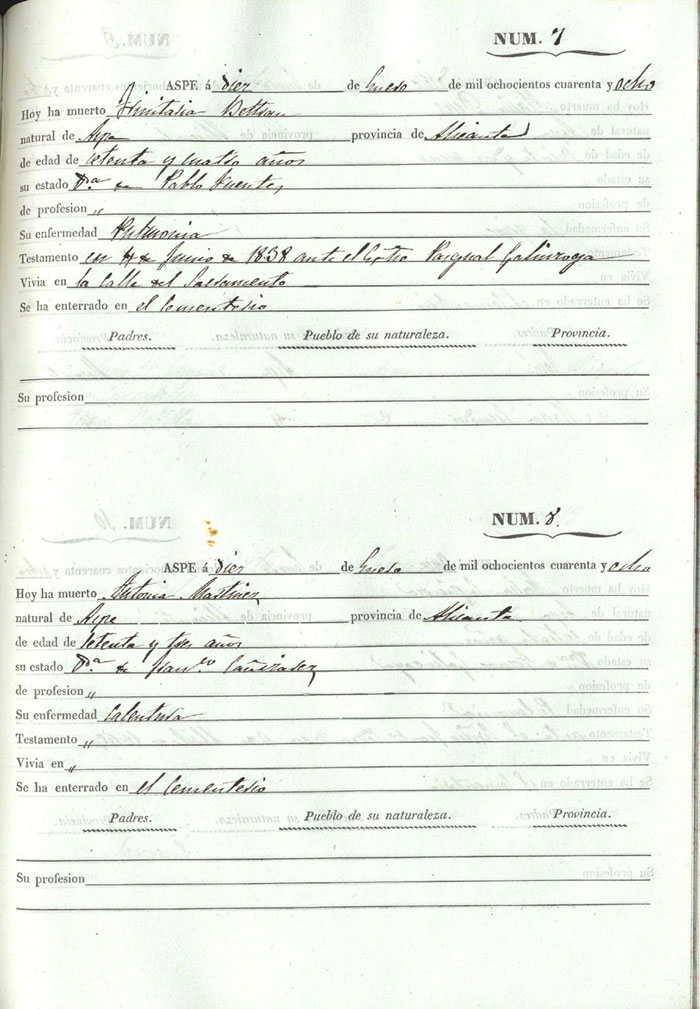 NUM. 7
ASPE á diez de Enero de mil ochocientos cuarenta y ocho
Hoy ha muerto Beltran
natural de Aspe provincia de Alicante
de edad de setenta y cuatro años
su estado V.ª de Pablo Fuentes
de profesion "
Su enfermedad Pulmonia
Testamento en de Junio de 1838 ante el Pasqual
Vivia en la Calle del Sacramento
Se ha enterrado en el Cementerio
Padres. Pueblo de su naturaleza. Provincia.
Su profesion
NUM. 8.
ASPE á diez de Enero de mil ochocientos cuarenta y ocho
Hoy ha muerto Antonia Martinez
natural de Aspe provincia de Alicante
de edad de setenta y tres años
su estado V.ª de Fran.co Cañizares
de profesion "
Su enfermedad Calentura
Testamento "
Vivia en "
Se ha enterrado en el Cementerio
Padres. Pueblo de su naturaleza. Provincia.
Su profesion